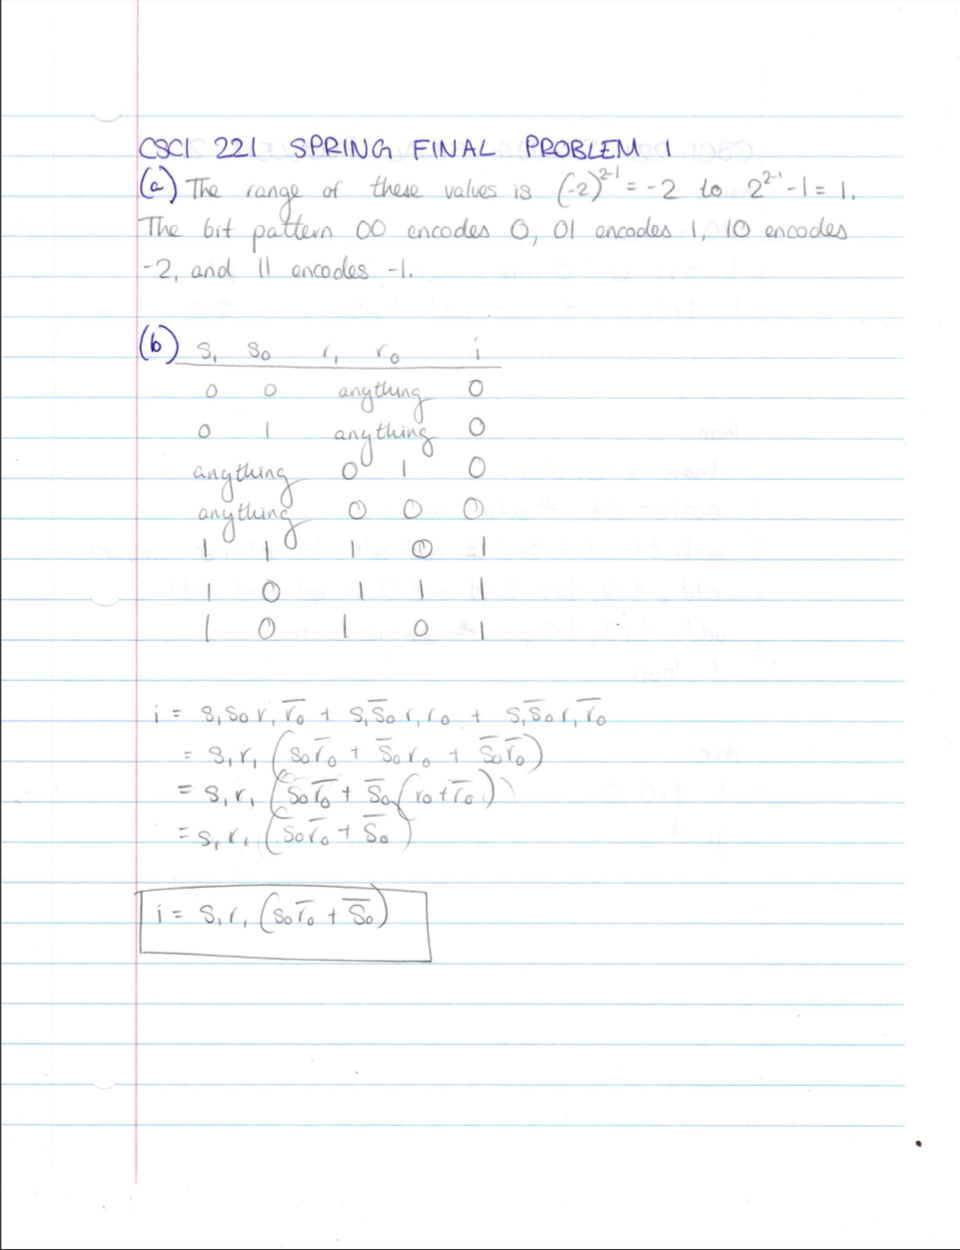 CSCI 221 SPRING FINAL PROBLEM 1
(a) The range of these values is (-2)^{2-1} = -2 to 2^{2-1} - 1 = 1.
The bit pattern 00 encodes 0, 01 encodes 1, 10 encodes
-2, and 11 encodes -1.
(b) s₁ s₀ r₁ r₀ i
0 0 anything 0
0 1 anything 0
anything 0 1 0
anything 0 0 0
1 1 1 0 1
1 0 1 1 1
1 0 1 0 1
i = s₁s₀r₁r̅₀ + s₁s̅₀r₁r₀ + s₁s̅₀r₁r̅₀
= s₁r₁(s₀r̅₀ + s̅₀r₀ + s̅₀r̅₀)
= s₁r₁(s₀r̅₀ + s̅₀(r₀ + r̅₀))
= s₁r₁(s₀r̅₀ + s̅₀)
i = s₁r₁(s₀r̅₀ + s̅₀)